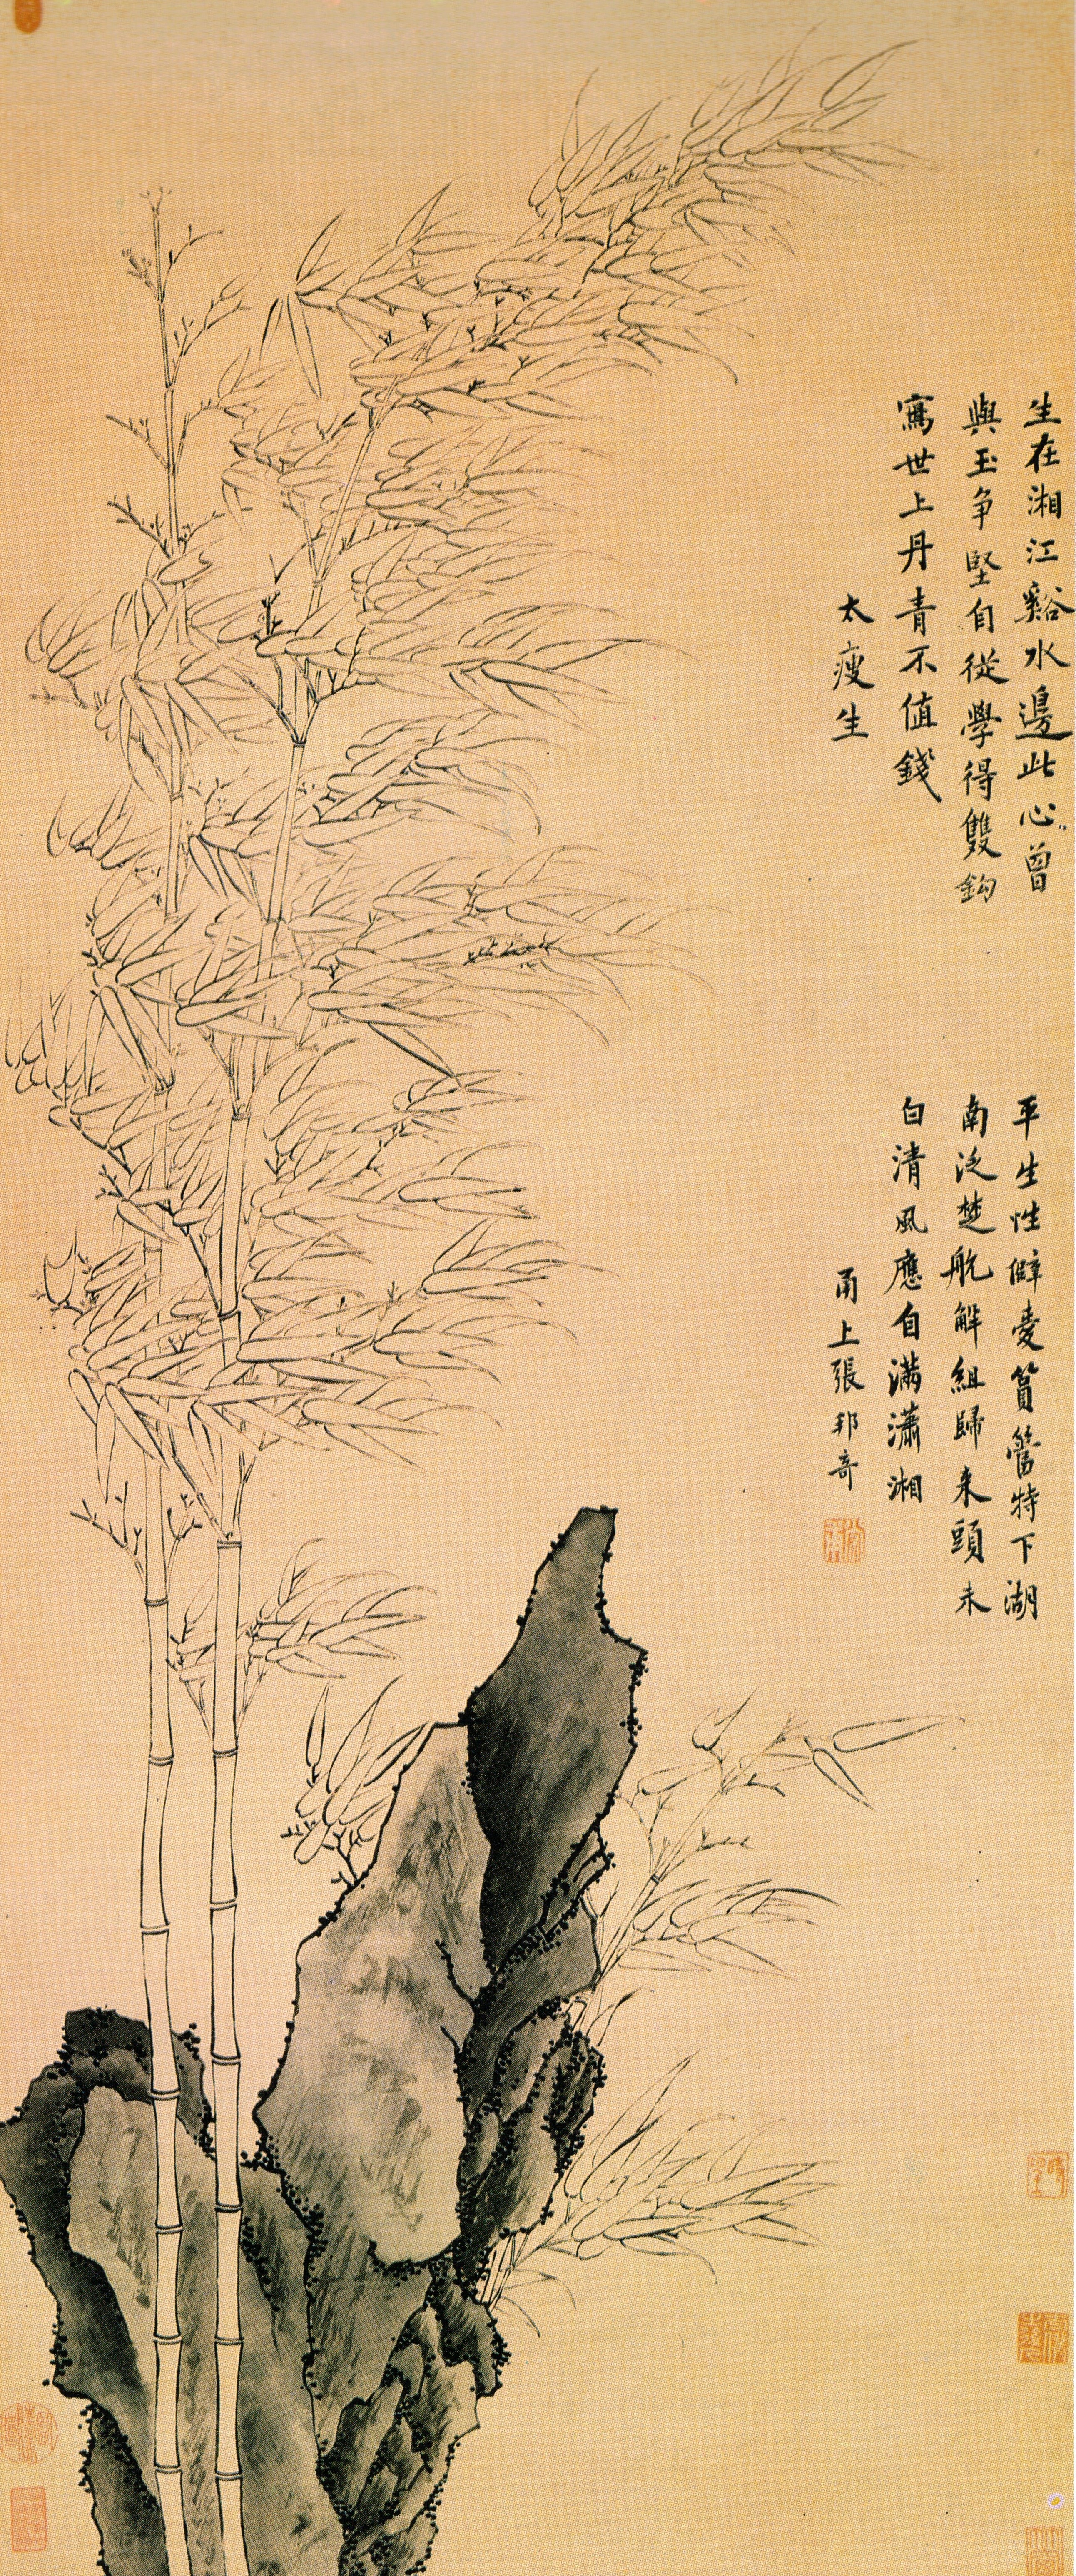 生在湘江谿水邊此心曾
與玉争堅自從學得雙鈎
寫世上丹青不值錢
太瘦生
平生性僻愛篔簹特下湖
南泛楚航解組歸来頭未
白清風應自滿瀟湘
甬上張邦奇